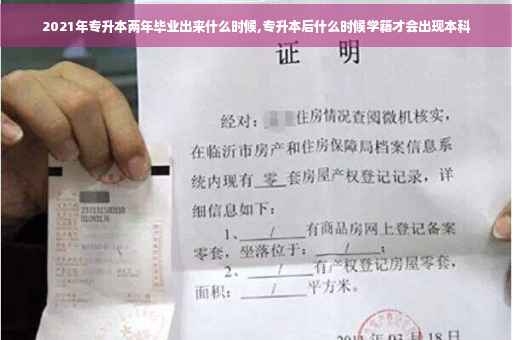 2021年专升本两年毕业出来什么时候,专升本后什么时候学籍才会出现本科
证 明
经对: 住房情况查阅微机核实,
在临沂市房产和住房保障局档案信息系
统内现有 零 套房屋产权登记记录, 详
细信息如下:
1、 / 有商品房网上登记备案
零套, 坐落位于: / ;
2、 / 有产权登记房屋零套,
面积: / 平方米。
03月18日